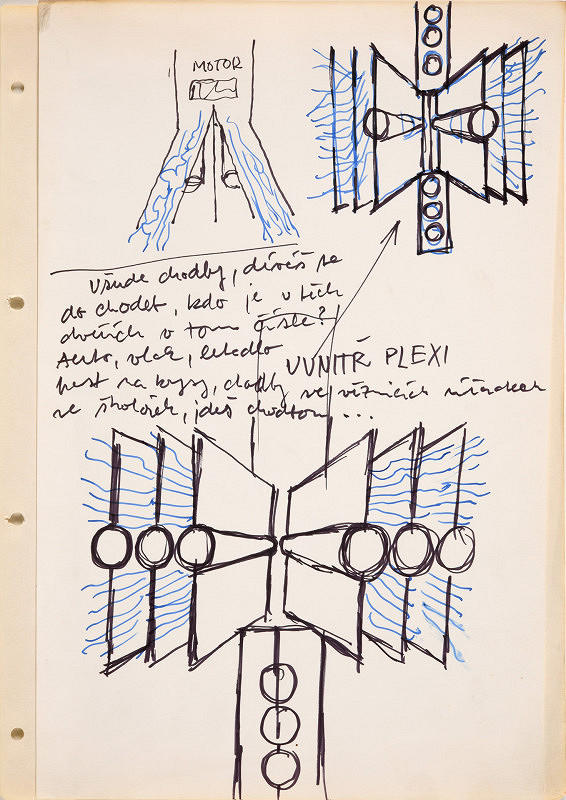 MOTOR
Všude chodby, díváš se
do chodeb, kdo je v těch
dveřích v tom čísle?
Auto, vlak, letadlo
past na krysy, chodby ve věznicích
ve školách, jdeš chodbou ...
UVNITŘ PLEXI